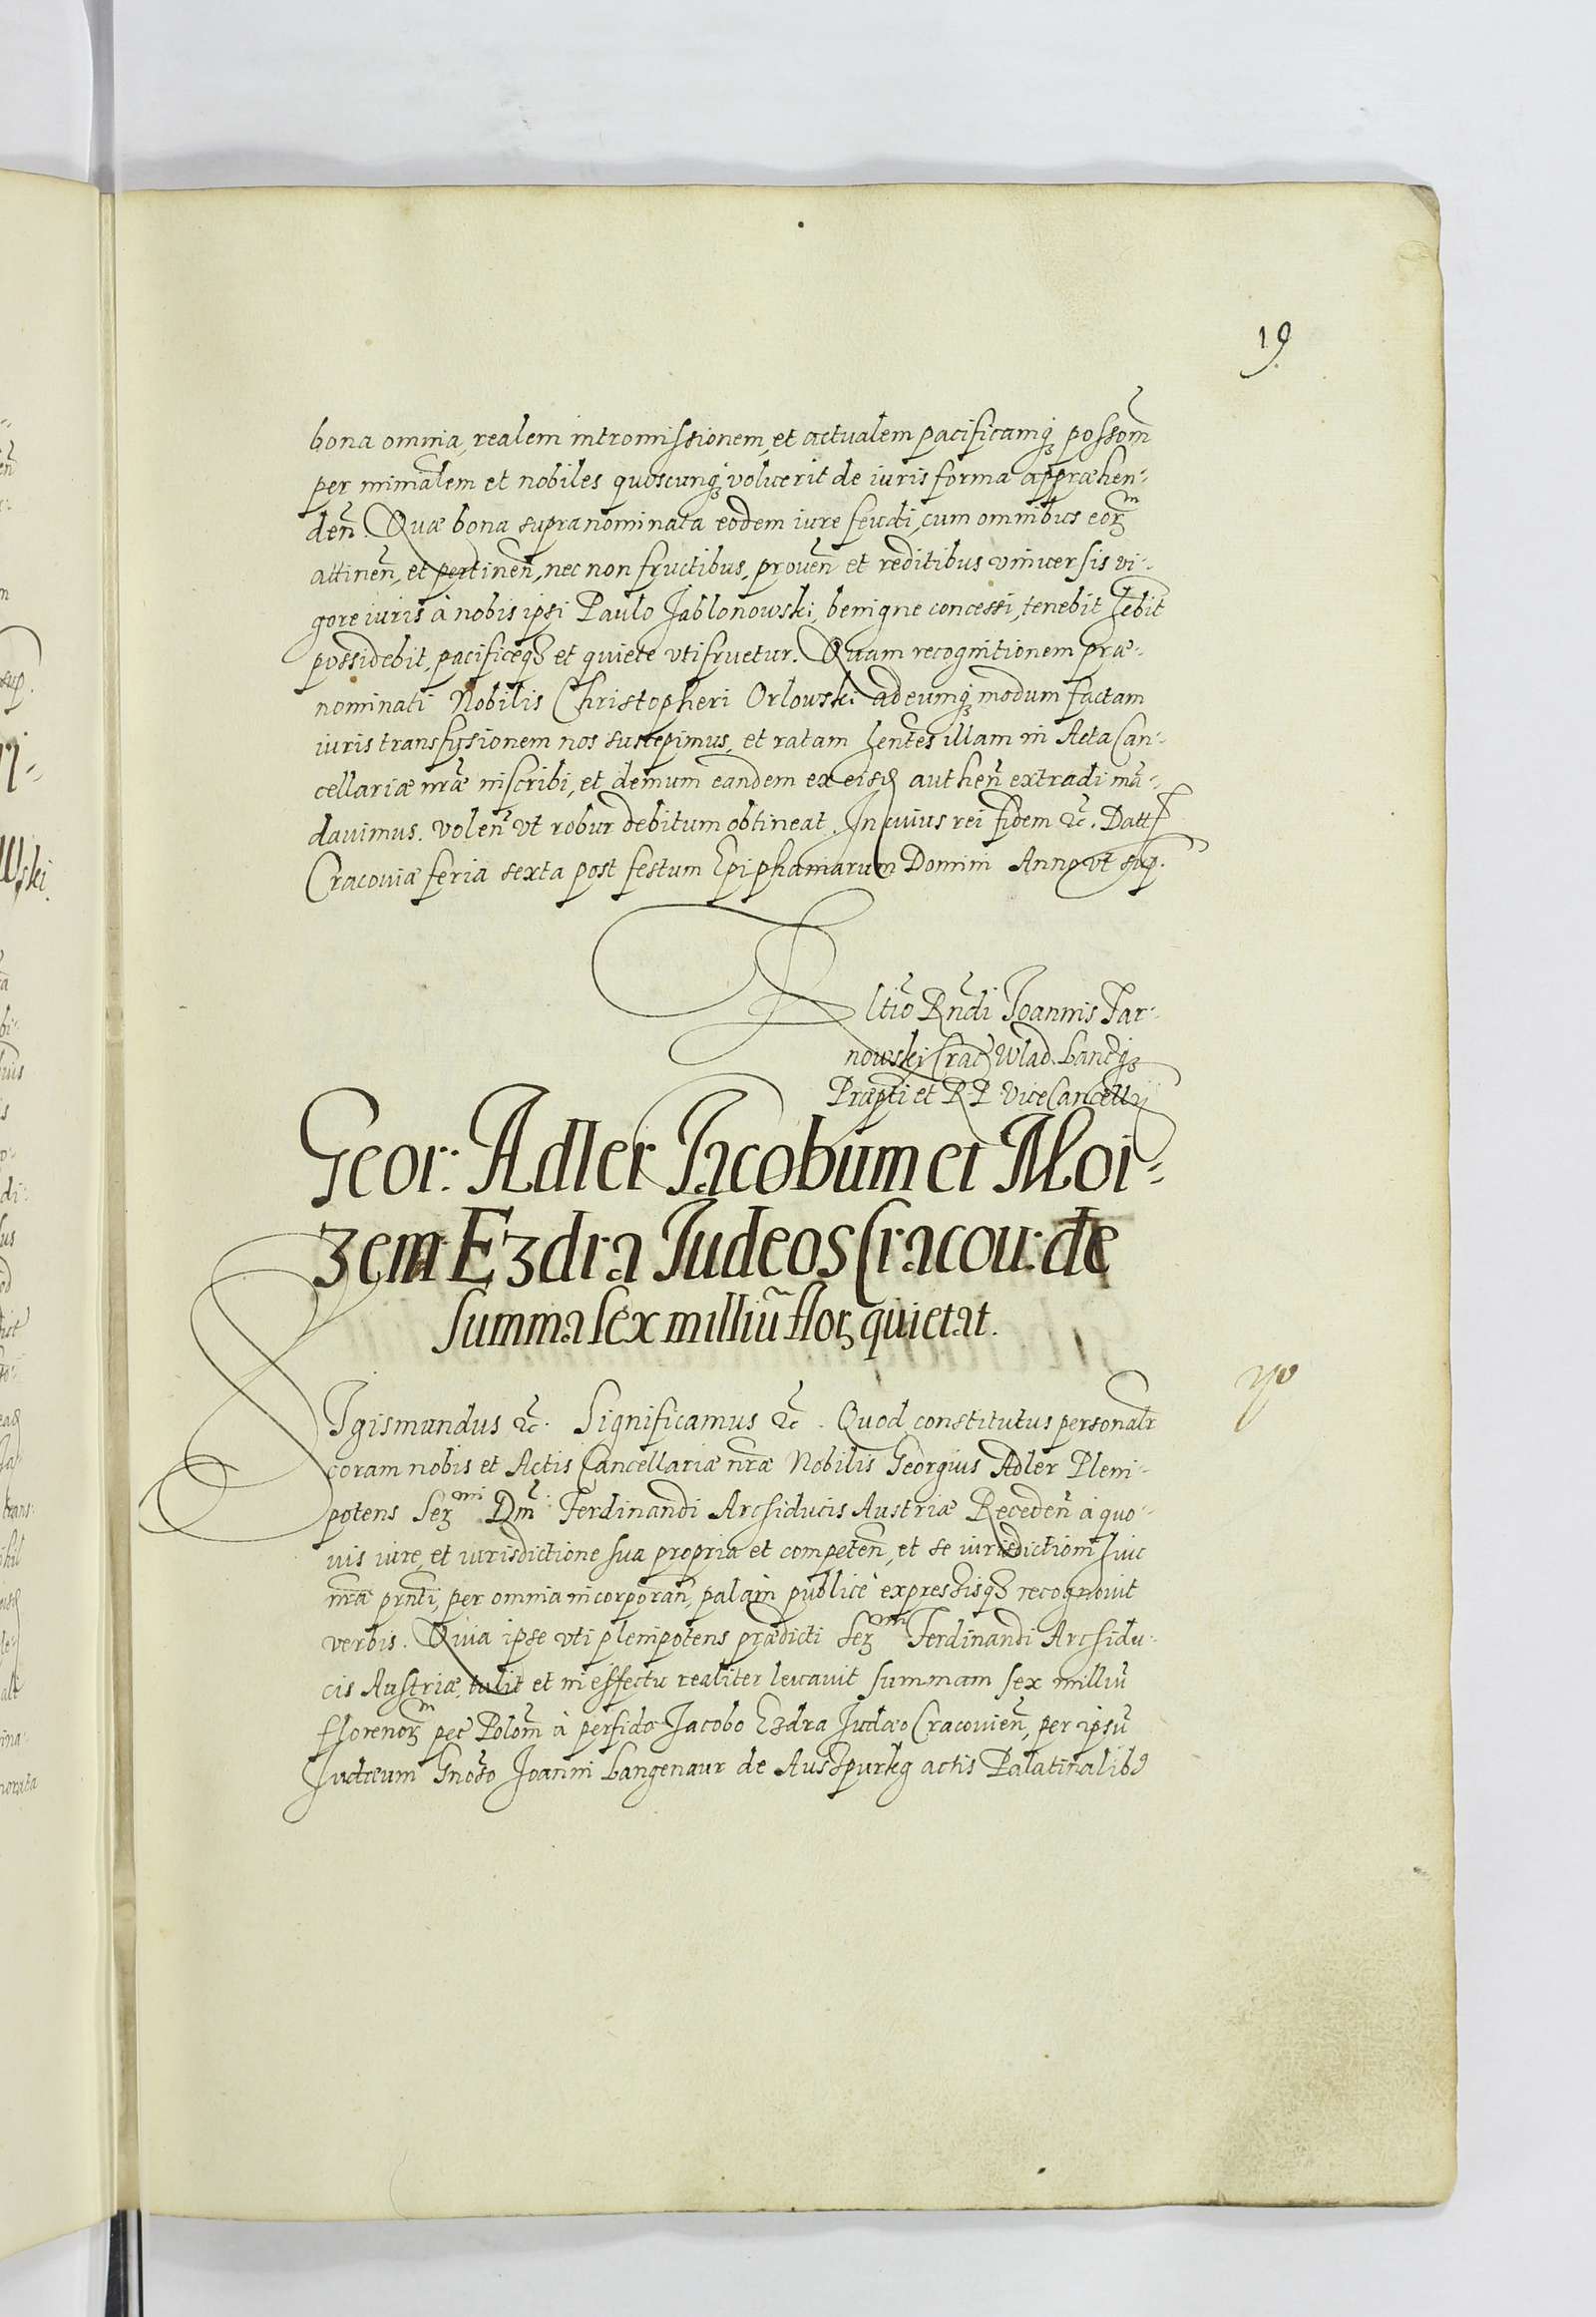 19.
bona omnia, realem intromissionem, et actualem pacificamq₃ possom̃
per minialem et nobiles quoscunq₃ voluerit de iuris forma appræhen-
den̄. Quæ bona supranominata eodem iure feudi, cum omnibus eorᷤ
attinen̄, et pertinen̄, nec non fructibus, prouen̄ et reditibus vniuersis vi-
gore iuris à nobis ipsi Paulo Jablonowski, benigne concessi, tenebit hebit
possidebit, pacificeqȝ et quiete vtifruetur. Quam recognitionem præ-
nominati Nobilis Christopheri Orlowski ad eumq₃ modum factam
iuris transfusionem nos suscepimus, et ratam hentes illam in Acta Can-
cellariæ nr̄æ inscribi, et demum eandem ex eisd authen̄ extradi mā-
dauimus. volen̄ vt robur debitum obtineat. In cuius rei fidem &c̄. Datt
Cracouiæ feria sexta post festum Epiphaniarum Domini Anno vt sup.
Rltio Rn̄di Joannis Tar-
nowski Crac Wlad. Lancq₃
Præpti et R P ViceCancellij
Geor: Adler Jacobum et Moi-
zem Ezdra Judeos Cracou: de
summa sex milliū flor quietat.
SIgismundus &c̄. Significamus &c̄. Quod constitutus personalr
coram nobis et Actis Cancellariæ nr̄æ Nobilis Georgius Adler Pleni-
potens Ser̄mi Dn̄i Ferdinandi Archiducis Austriæ Receden̄ à quo-
uis iure, et iurisdictione sua propria et competen̄, et se iurisdictioni huic
nr̄æ pn̄ti, per omnia incorporan̄, palam publicè expressisqȝ recognouit
verbis. Quia ipse vti plenipotens prædicti Ser̄mi Ferdinandi Archidu-
cis Austriæ, tulit et in effectu realiter leuauit summam sex milliū
florenorᷤ pec̄ Polon̄ à perfido Jacobo Ezdra Judæo Cracouien̄, per ipsū
Judæum Gn̄oso Joanni Langenaur de Auspurkg actis Palatinalibꝰ